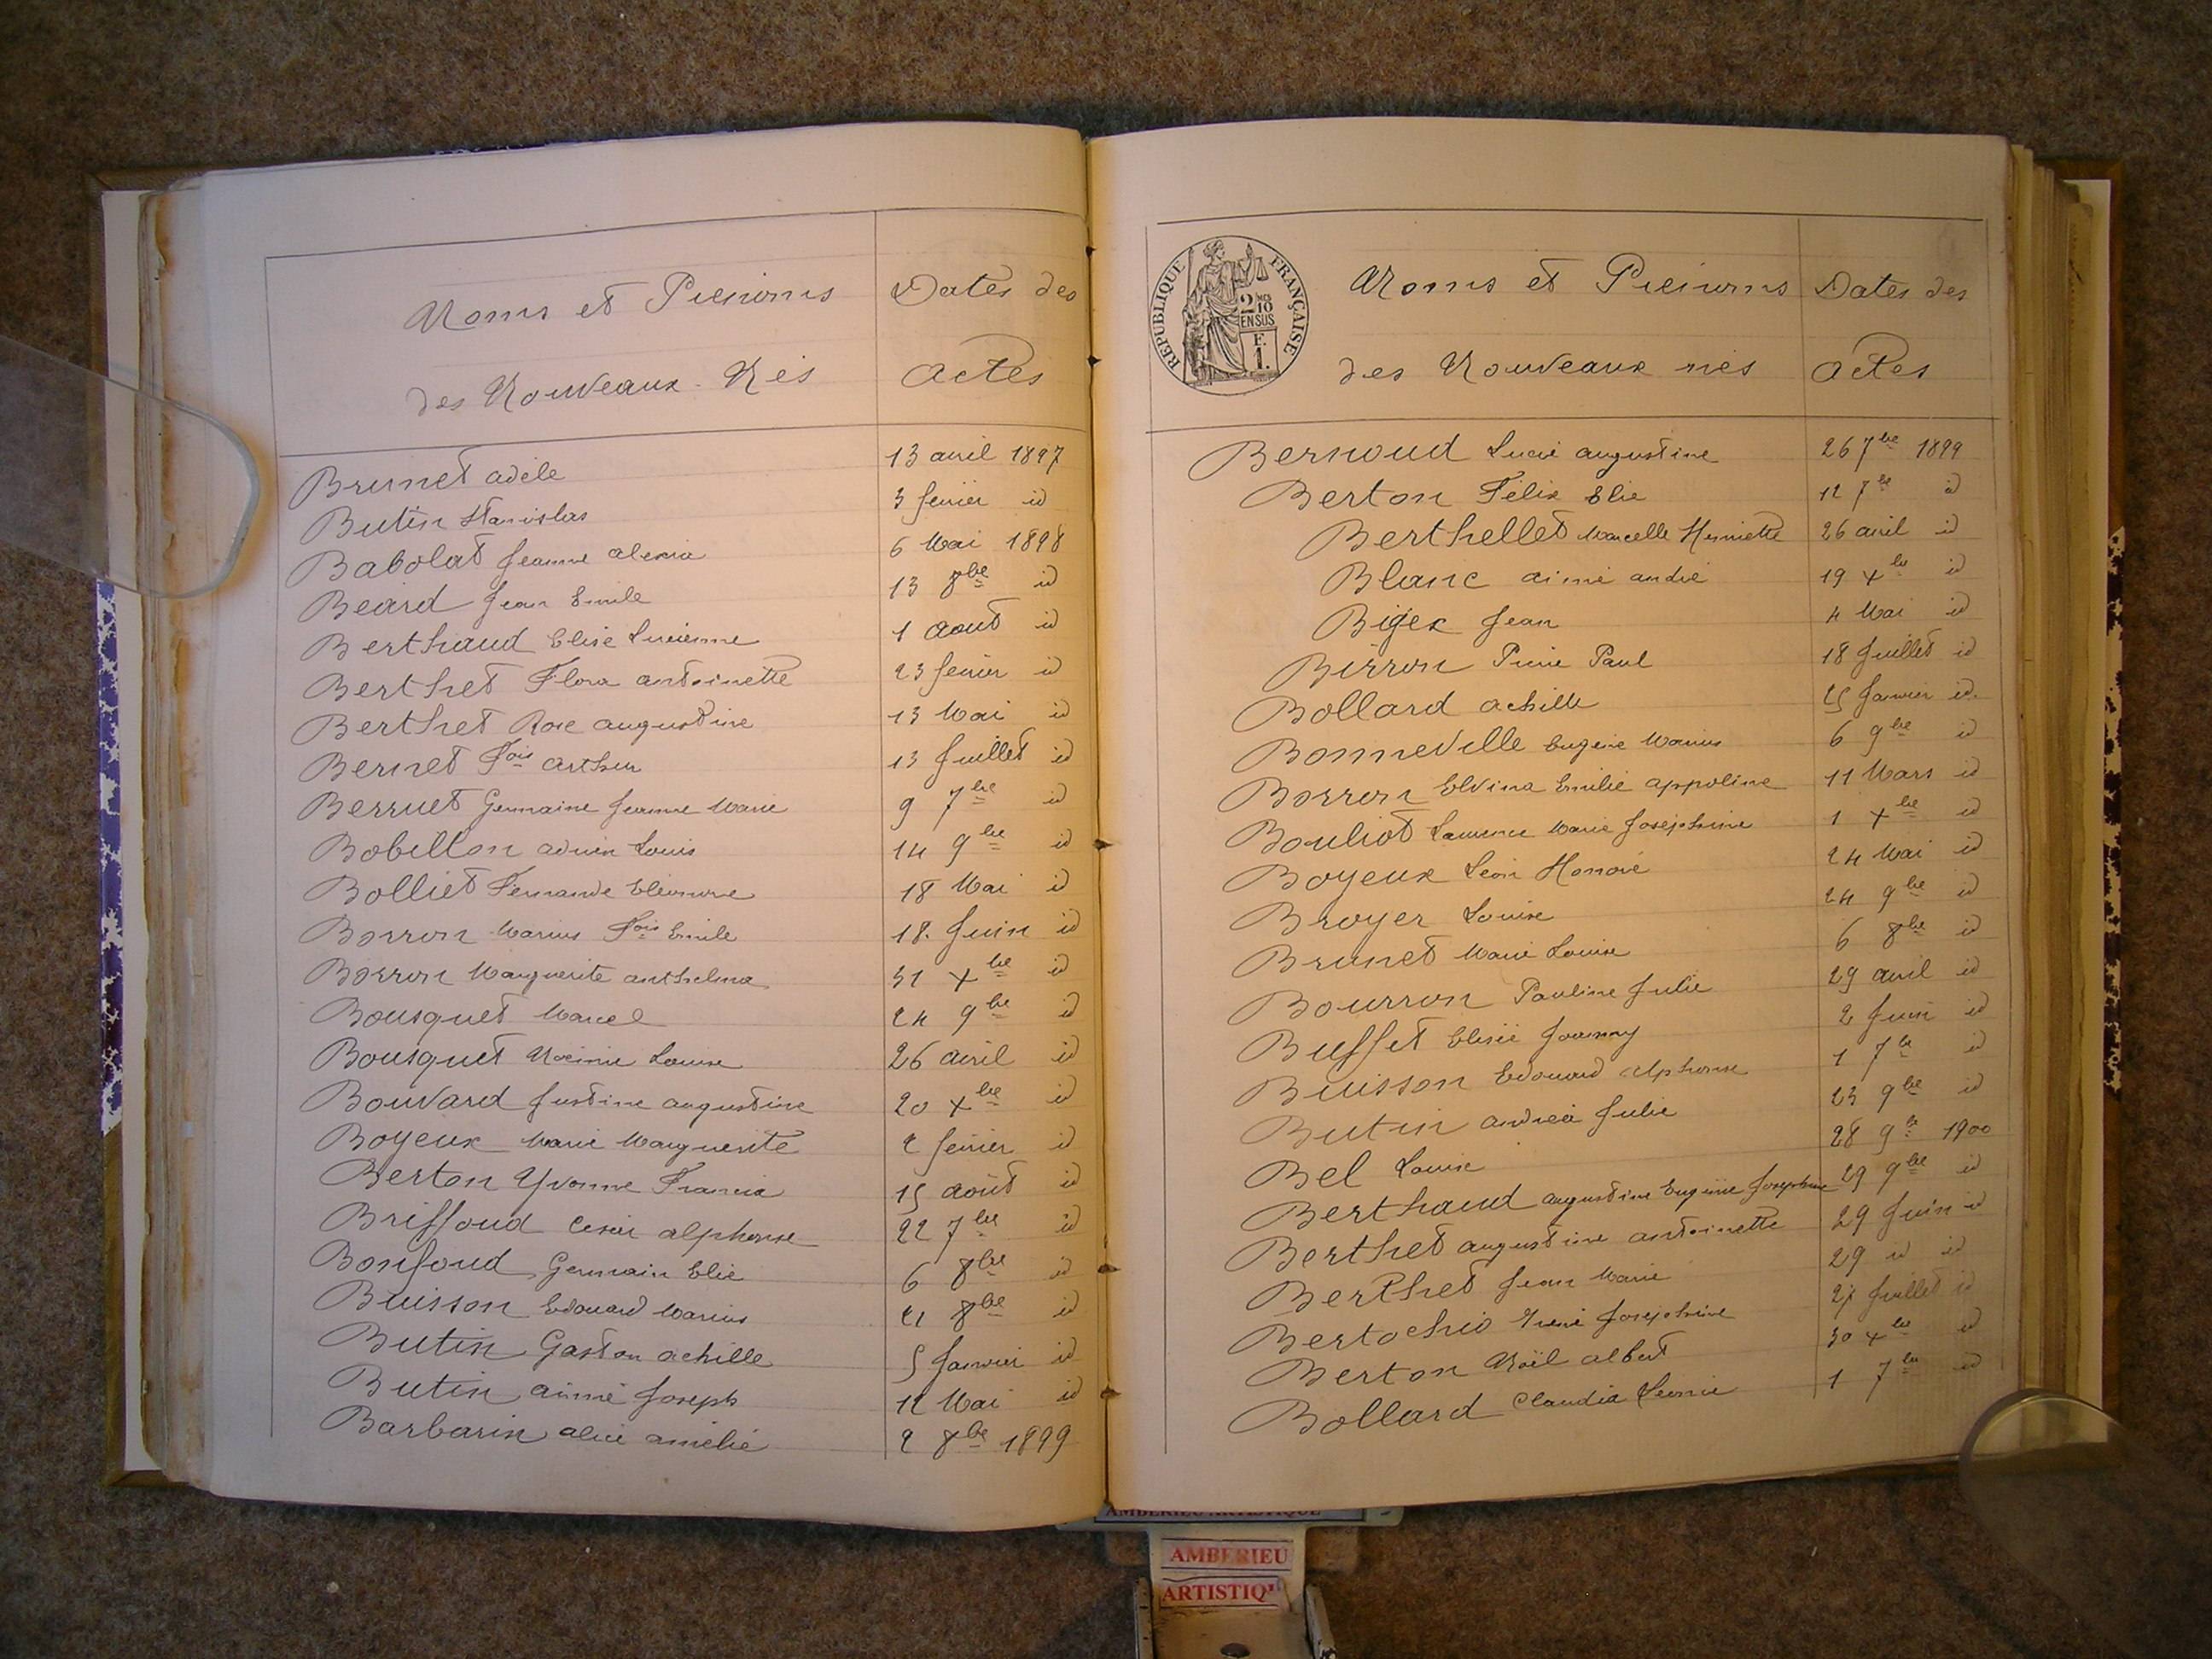 Noms et Prénoms
des Nouveaux-Nés
Dates des
Actes
Brunet adèle 13 avril 1897
Butin Stanislas 3 fevrier id
Babolat Jeanne alexia 6 Mai 1898
Beard Jean Emile 13 8bre id
Berthaud Elise Lucienne 1 aout id
Berthet Flora antoinette 23 fevrier id
Berthet Rose augustine 13 Mai id
Bernet Fois arthur 13 Juillet id
Berruet Germaine Jeanne Marie 9 7bre id
Bobillon adrien Louis 14 9bre id
Bolliet Fernande Eléonore 18 Mai id
Borron Marius Fois Emile 18. Juin id
Borron Marguerite anthelma 31 xbre id
Bousquet Marcel 24 9bre id
Bousquet Noémie Louise 26 avril id
Bouvard Justine augustine 20 xbre id
Boyeux Marie Marguerite 2 fevrier id
Berton Yvonne Francia 15 août id
Briffoud Cesar alphonse 22 7bre id
Bonfoud Germain Elie 6 8bre id
Buisson Edouard Marius 21 8bre id
Butin Gaston achille 5 Janvier id
Butin aimé Joseph 12 Mai id
Barbarin alice amelie 2 8bre 1899
REPUBLIQUE FRANÇAISE
2 10 EN SUS
F. 1.
Noms et Prénoms
des Nouveaux nés
Dates des
Actes
Bernoud Lucie augustine 26 7bre 1899
Berton Félix Elie 12 7bre id
Berthellet Marcelle Henriette 26 avril id
Blanc aimé andré 19 xbre id
Bigex Jean 4 Mai id
Birron Pierre Paul 18 Juillet id
Bollard achille 25 Janvier id.
Bonneville Eugène Marius 6 9bre id
Borron Elvina Emilie appoline 11 Mars id
Bouliot Laurence Marie Joséphine 1 xbre id
Boyeux Léon Honoré 24 Mai id
Broyer Louise 24 9bre id
Brunet Marie Louise 6 8bre id
Bourron Pauline Julie 29 avril id
Buffet Joanny 2 Juin id
Buisson Edouard alphonse 1 7bre id
Butin andréa Julie 23 9bre id
Bel Louise 28 9bre 1900
Berthaud augustine Eugénie Josephine 29 9bre id
Berthet augustine antoinette 29 Juin id
Berthet Jean Marie 29 id id
Bertochio Irène Joséphine 27 Juillet id
Berton Noël albert 30 xbre id
Bollard Claudia Leonie 1 7bre id
AMBERIEU ARTISTIQUE
AMBERIEU
ARTISTIQ